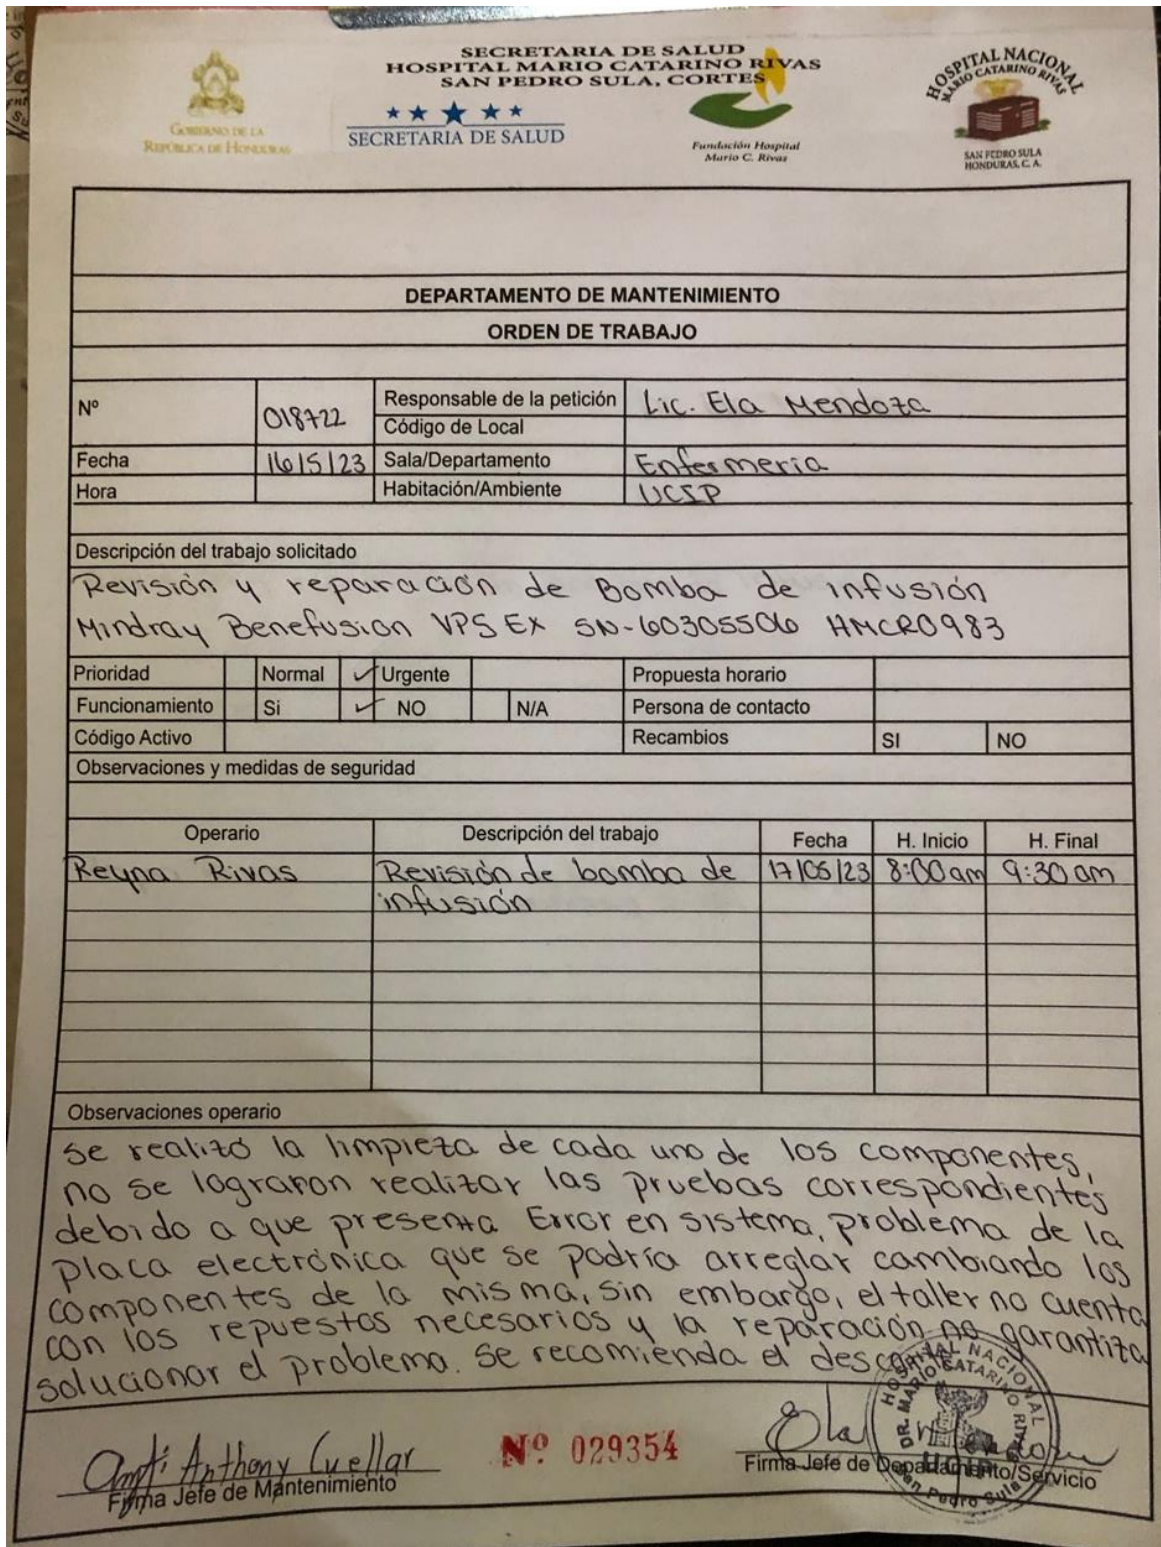 SECRETARIA DE SALUD
HOSPITAL MARIO CATARINO RIVAS
SAN PEDRO SULA, CORTES
GOBIERNO DE LA
REPÚBLICA DE HONDURAS
SECRETARIA DE SALUD
Fundación Hospital
Mario C. Rivas
HOSPITAL NACIONAL
MARIO CATARINO RIVAS
SAN PEDRO SULA
HONDURAS, C. A.
DEPARTAMENTO DE MANTENIMIENTO
ORDEN DE TRABAJO
Nº 018722 Responsable de la petición Lic. Ela Mendoza
Código de Local
Fecha 16/5/23 Sala/Departamento Enfermeria
Hora Habitación/Ambiente UCIP
Descripción del trabajo solicitado
Revisión y reparación de Bomba de infusión
Mindray Benefusion VPS EX SN-60305506 HMCR0983
Prioridad Normal ✓ Urgente Propuesta horario
Funcionamiento Si ✓ NO N/A Persona de contacto
Código Activo Recambios SI NO
Observaciones y medidas de seguridad
Operario Descripción del trabajo Fecha H. Inicio H. Final
Reyna Rivas Revisión de bomba de 17/05/23 8:00am 9:30am
infusión
Observaciones operario
se realizó la limpieza de cada uno de los componentes,
no se lograron realizar las pruebas correspondientes
debido a que presenta Error en sistema, problema de la
placa electrónica que se podría arreglar cambiando los
componentes de la misma, sin embargo, el taller no cuenta
con los repuestos necesarios y la reparación no garantiza
solucionar el problema. se recomienda el descarte
Anthony Cuellar
Nº 029354
Ela Mendoza
Firma Jefe de Mantenimiento
Firma Jefe de Departamento/Servicio
HOSPITAL NACIONAL
DR. MARIO CATARINO RIVAS
UCIP
San Pedro Sula